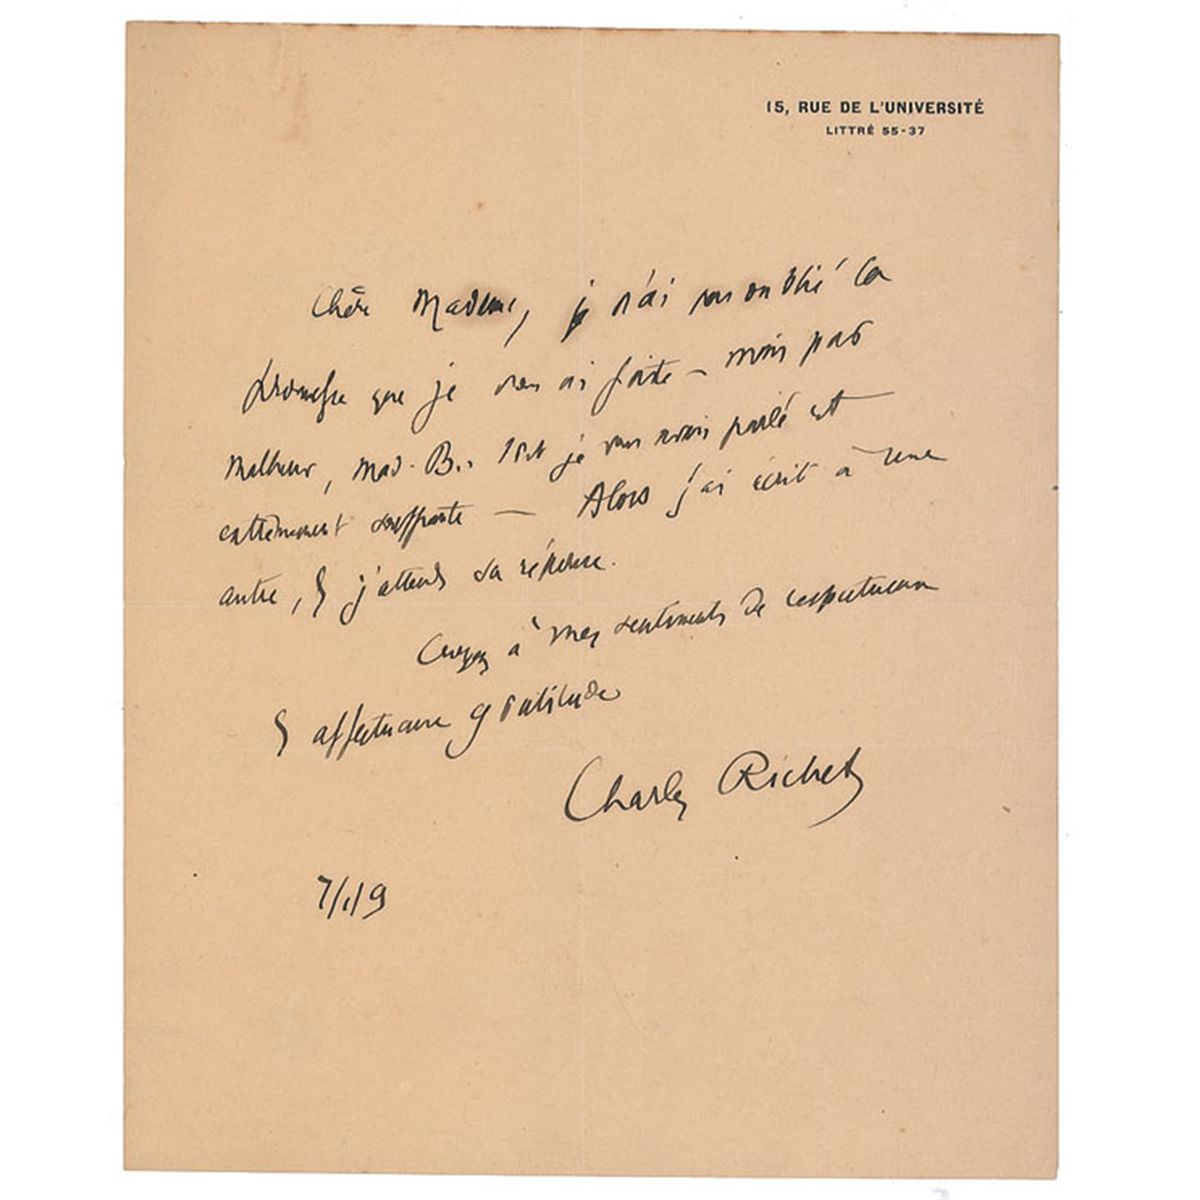 15, RUE DE L'UNIVERSITÉ
LITTRÉ 55-37
Chère Madame, je n'ai pas oublié la
promesse que je vous ai faite – mais par
malheur, Mad. B. dont je vous avais parlé est
extrêmement souffrante – Alors j'ai écrit à une
autre, & j'attends sa réponse.
Croyez à mes sentiments de respectueuse
& affectueuse gratitude
Charles Richet
7/1/19